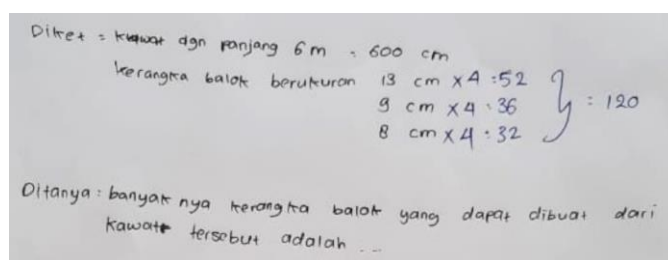 Diket = kawat dgn panjang 6 m = 600 cm
kerangka balok berukuran 13 cm x 4 : 52
9 cm x 4 : 36 } : 120
8 cm x 4 : 32
Ditanya : banyak nya kerangka balok yang dapat dibuat dari
kawat tersebut adalah ...